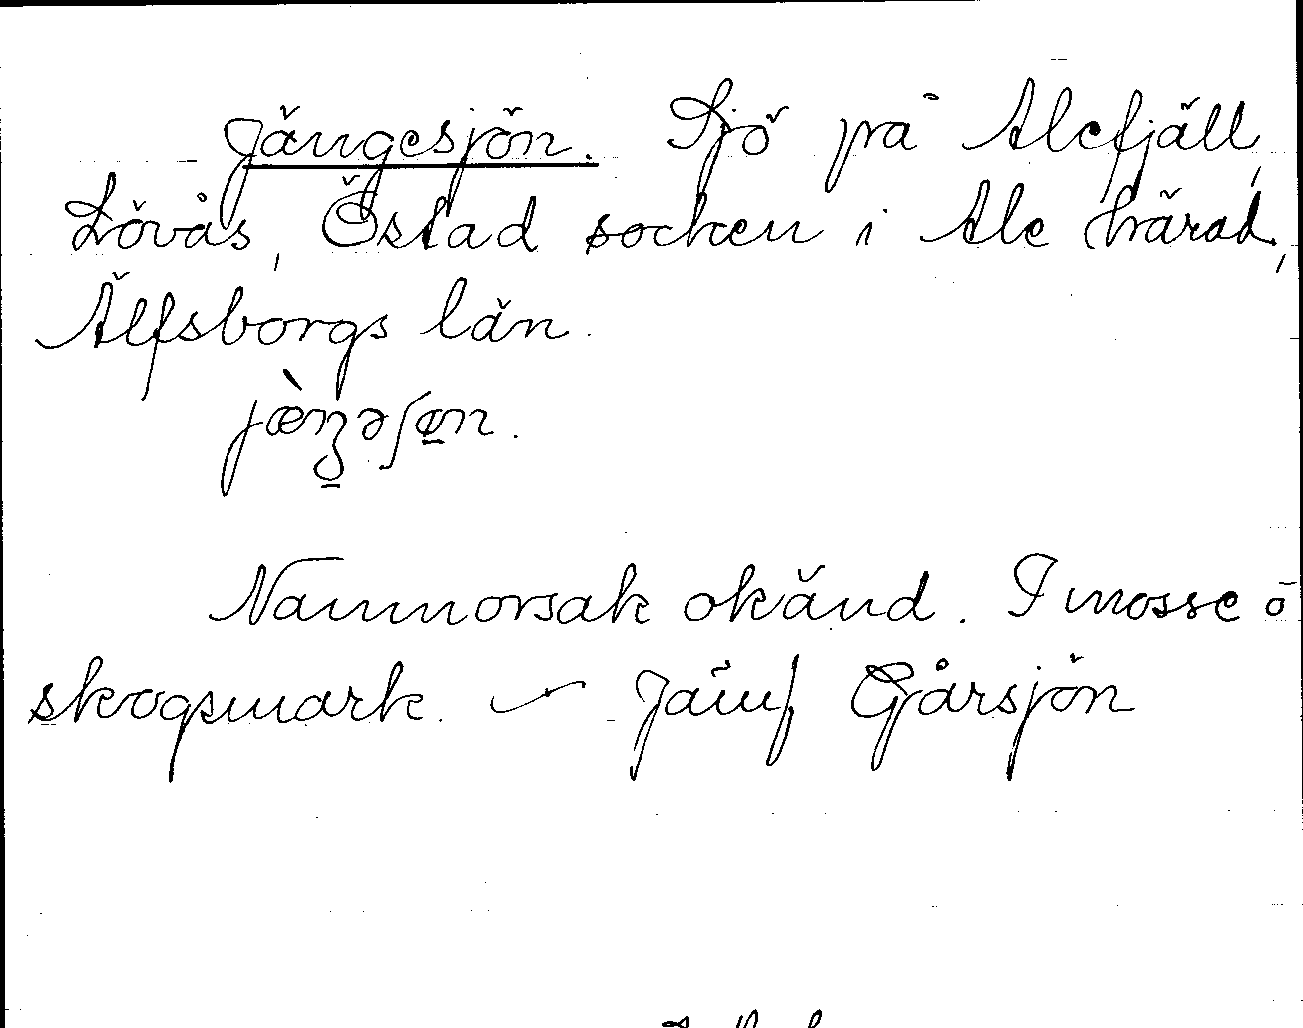 Jängesjön. Sjö på Alefjäll,
Lövås, Östad socken i Ale härad,
Älfsborgs län.
jæ̀ŋəʃøn.
Namnorsak okänd. I mosse o
skogsmark. – Jämf Gårsjön